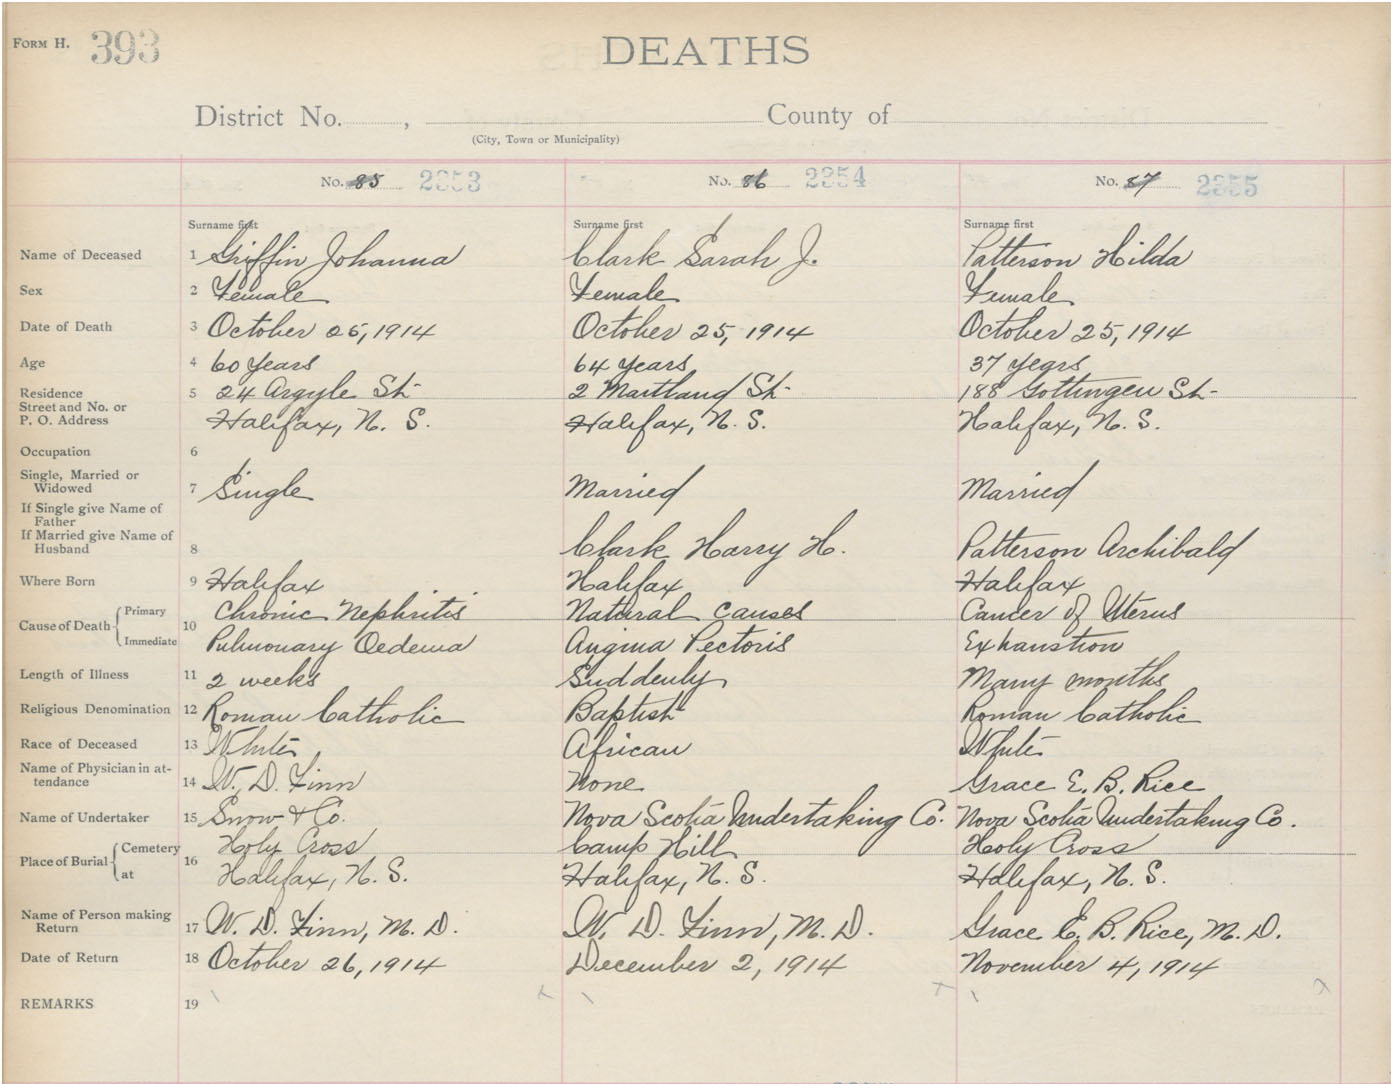 FORM H. 393
DEATHS
District No. , County of
(City, Town or Municipality)
No. 85 2353 No. 86 2354 No. 87 2355
Surname first Surname first Surname first
Name of Deceased 1 Griffin Johanna Clark Sarah J. Patterson Hilda
Sex 2 Female Female Female
Date of Death 3 October 26, 1914 October 25, 1914 October 25, 1914
Age 4 60 Years 64 Years 37 Years
Residence 5 24 Argyle St 2 Maitland St 188 Gottingen St
Street and No. or
P. O. Address Halifax, N. S. Halifax, N. S. Halifax, N. S.
Occupation 6
Single, Married or
Widowed 7 Single Married Married
If Single give Name of
Father
If Married give Name of
Husband 8 Clark Harry H. Patterson Archibald
Where Born 9 Halifax Halifax Halifax
Cause of Death 10 Primary Chronic Nephritis Natural causes Cancer of Uterus
Immediate Pulmonary Oedema Angina Pectoris Exhaustion
Length of Illness 11 2 weeks Suddenly Many months
Religious Denomination 12 Roman Catholic Baptist Roman Catholic
Race of Deceased 13 White African White
Name of Physician in at-
tendance 14 W. D. Finn None Grace E. B. Rice
Name of Undertaker 15 Snow & Co. Nova Scotia Undertaking Co. Nova Scotia Undertaking Co.
Place of Burial 16 Cemetery Holy Cross Camp Hill Holy Cross
at Halifax, N. S. Halifax, N. S. Halifax, N. S.
Name of Person making
Return 17 W. D. Finn, M. D. W. D. Finn, M. D. Grace E. B. Rice, M. D.
Date of Return 18 October 26, 1914 December 2, 1914 November 4, 1914
REMARKS 19